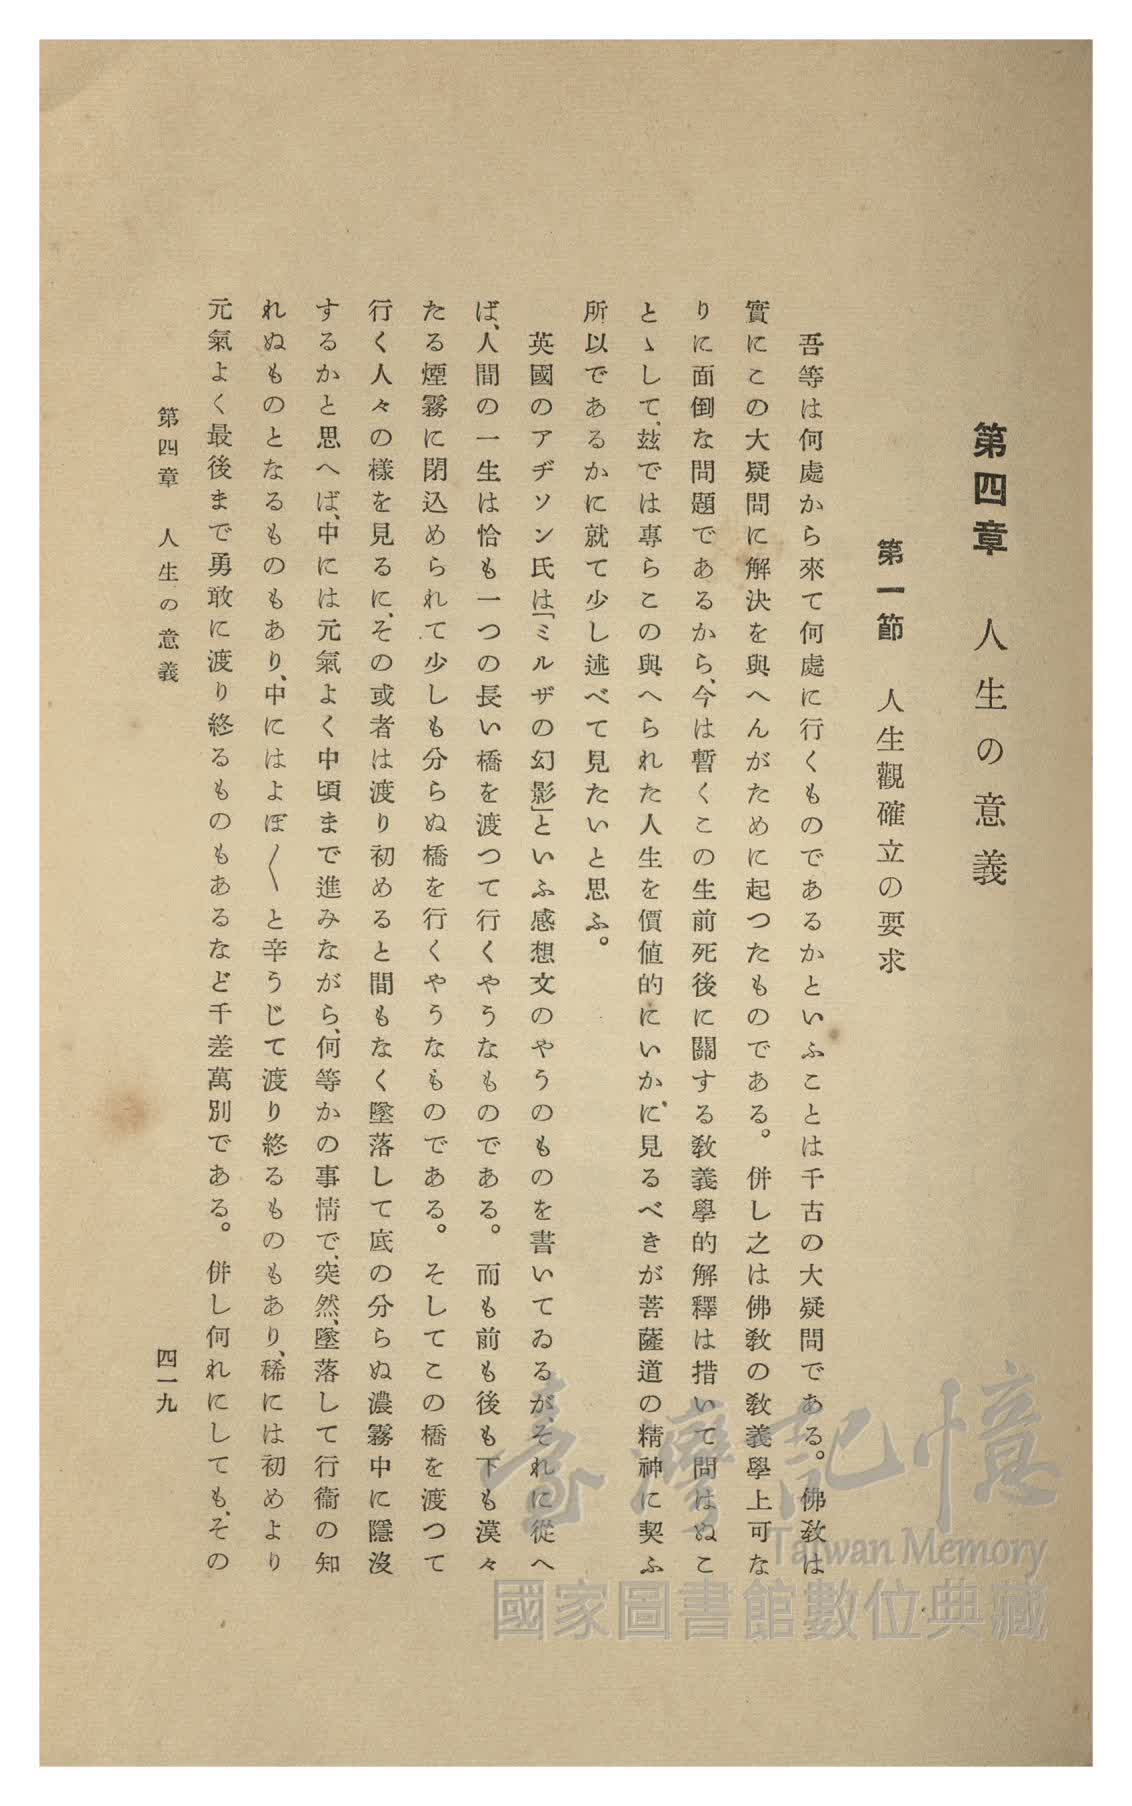 第四章　人生の意義
第一節　人生觀確立の要求
吾等は何處から來て何處に行くものであるかといふことは千古の大疑問である。佛敎は
實にこの大疑問に解決を與へんがために起つたものである。併し之は佛敎の敎義學上可な
りに面倒な問題であるから、今は暫くこの生前死後に關する敎義學的解釋は措いて問はぬこ
とゝして、玆では專らこの與へられた人生を價値的にいかに見るべきが菩薩道の精神に契ふ
所以であるかに就て少し述べて見たいと思ふ。
英國のアヂソン氏は「ミルザの幻影」といふ感想文のやうのものを書いてゐるが、それに從へ
ば、人間の一生は恰も一つの長い橋を渡つて行くやうなものである。而も前も後も下も漠々
たる煙霧に閉込められて少しも分らぬ橋を行くやうなものである。そしてこの橋を渡つて
行く人々の樣を見るに、その或者は渡り初めると間もなく墜落して底の分らぬ濃霧中に隱沒
するかと思へば、中には元氣よく中頃まで進みながら、何等かの事情で、突然、墜落して行衞の知
れぬものとなるものもあり、中にはよぼ〱と辛うじて渡り終るものもあり、稀には初めより
元氣よく最後まで勇敢に渡り終るものもあるなど千差萬別である。併し何れにしても、その
第四章　人生の意義
四一九
臺灣記憶
Taiwan Memory
國家圖書館數位典藏